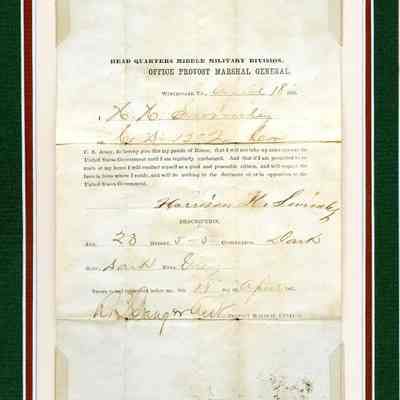 HEAD QUARTERS MIDDLE MILITARY DIVISION,
OFFICE PROVOST MARSHAL GENERAL.
WINCHESTER VA, April 18 186
I, H. H.
Co
C. S. Army, do hereby give this my parole of Honor, that I will not take up arms against the
United States Government until I am regularly exchanged. And that if I am permitted to re-
main at my home I will conduct myself as a good and peaceable citizen, and will respect the
laws in force where I reside, and will do nothing to the detriment of or in opposition to the
United States Government.
Harrison H.
DESCRIPTION.
AGE, 23 HEIGHT, 5-5 COMPLEXION, Dark
HAIR, Dark EYES, Grey
Sworn to and subscribed before me this 18 day of April 186
PROVOST MARSHAL GENERAL